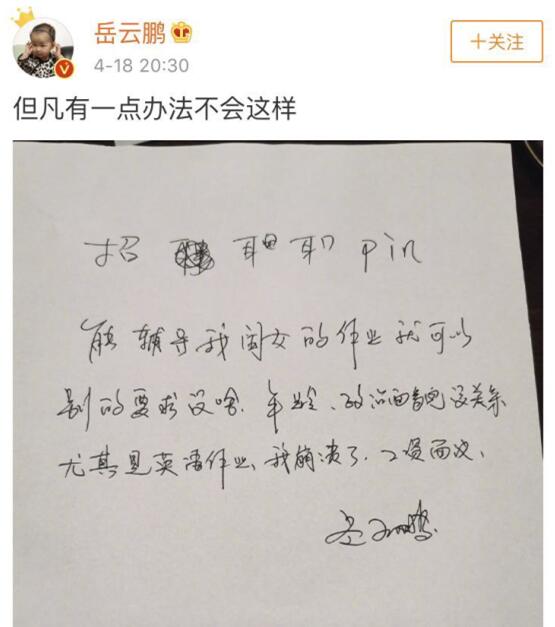 岳云鹏
+关注
4-18 20:30
但凡有一点办法不会这样
招 pin
能辅导我闺女的作业就可以
别的要求没啥.年龄、政治面貌没关系
尤其是英语作业、我崩溃了.工资面议、
岳云鹏